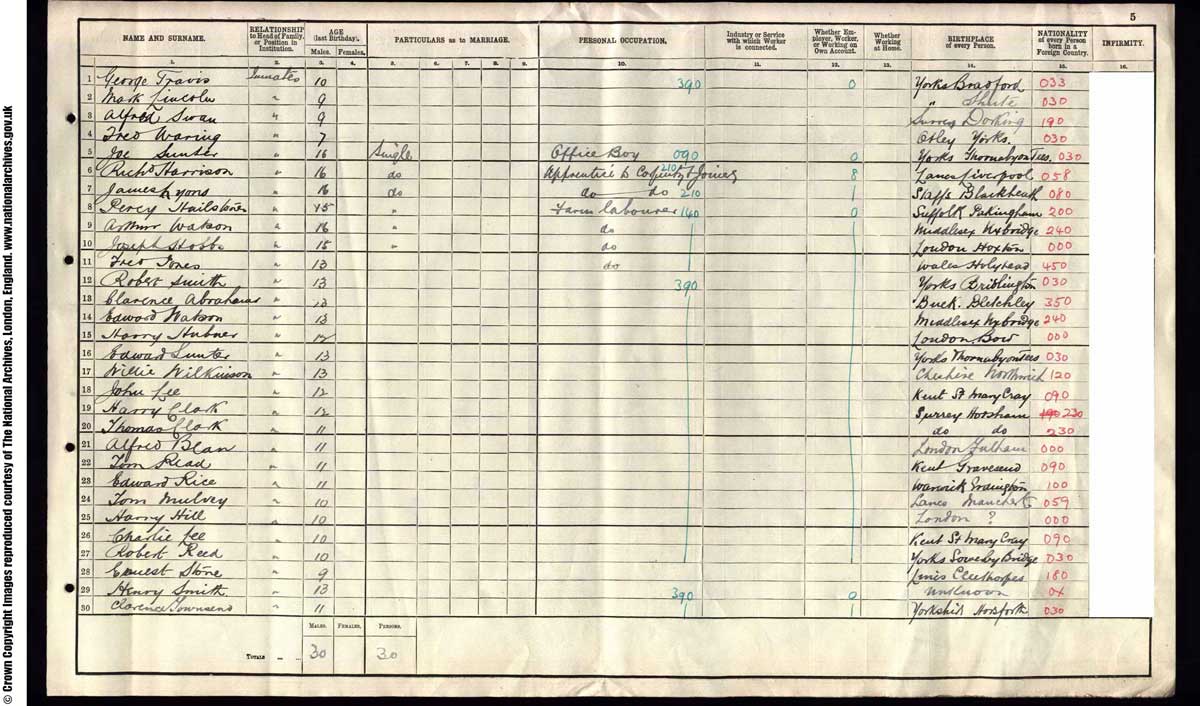 5
NAME AND SURNAME. RELATIONSHIP to Head of Family, or Position in Institution. AGE (last Birthday). Males. Females. PARTICULARS as to MARRIAGE. PERSONAL OCCUPATION. Industry or Service with which Worker is connected. Whether Employer, Worker, or Working on Own Account. Whether Working at Home. BIRTHPLACE of every Person. NATIONALITY of every Person born in a Foreign Country. INFIRMITY.
1. 2. 3. 4. 5. 6. 7. 8. 9. 10. 11. 12. 13. 14. 15. 16.
1 George Travis Inmates 10 390 0 Yorks Bradford 033
2 Mark Lincoln " 9 " 030
3 Alfred Swan " 9 Surrey Dorking 190
4 Fred Waring " 7 Otley Yorks. 030
5 Joe Sunter " 16 Single Office Boy 090 0 Yorks Thornaby on Tees. 030
6 Richd Harrison " 16 do Apprentice to Carpenter & Joiner 210 8 Lancs Liverpool 058
7 James Lyons " 16 do do do 210 1 Staffs Blackheath 080
8 Percy Hailstone " 15 " Farm labourer 140 0 Suffolk Pakingham 200
9 Arthur Watson " 16 " do Middlesex Uxbridge 240
10 Joseph Stobbs " 15 " do London Hoxton 000
11 Fred Jones " 13 do Wales Holyhead 450
12 Robert Smith " 13 390 0 Yorks Bridlington 030
13 Clarence Abrahams " 13 Buck. Bletchley 350
14 Edward Watson " 13 Middlesex Uxbridge 240
15 Harry Hubner " 12 London Bow 000
16 Edward Sunter " 13 Yorks Thornaby on Tees 030
17 Willie Wilkinson " 13 Cheshire Northwich 120
18 John Lee " 12 Kent St Mary Cray 090
19 Harry Clark " 12 Surrey Horsham 190 230
20 Thomas Clark " 11 do do 230
21 Alfred Blan " 11 London Fulham 000
22 Tom Read " 11 Kent Gravesend 090
23 Edward Rice " 11 Warwick Erdington 100
24 Tom Mulvey " 10 Lancs Manchester 059
25 Harry Hill " 10 London ? 000
26 Charlie Lee " 10 Kent St Mary Cray 090
27 Robert Reed " 10 Yorks Sowerby Bridge 030
28 Ernest Stone " 9 Lincs Cleethorpes 180
29 Henry Smith " 13 390 0 Unknown 0X
30 Clarence Townsend " 11 1 Yorkshire Horsforth 030
MALES. FEMALES. PERSONS.
TOTALS 30 30
© Crown Copyright Images reproduced courtesy of The National Archives, London, England. www.nationalarchives.gov.uk